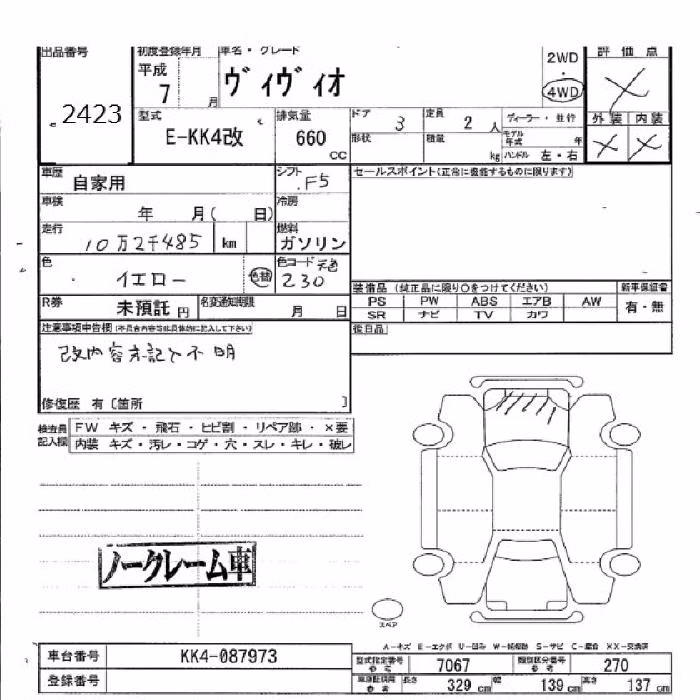 出品番号
2423
初度登録年月
平成
7 月
車名・グレード
ヴィヴィオ
2WD
・
4WD
評価点
X
外装 内装
X X
型式
E-KK4改
排気量
660
CC
ドア 3
形状
定員 2 人
積量 kg
ディーラー・並行
モデル年式 年
ハンドル 左・右
車歴
自家用
シフト
F5
セールスポイント(正常に機能するものに限ります)
車検
年 月( 日)
冷房
走行
10万2千485 km
燃料
ガソリン
色
イエロー 色替
色コード
230
装備品 (純正品に限り〇をつけてください)
新車保証書
PS PW ABS エアB AW
SR ナビ TV カワ
有・無
R券
未預託 円
名変通知期限
月 日
後日品
注意事項申告欄(不具合内容等は具体的に記入して下さい)
改内容未記で不明
修復歴 有〔箇所 〕
検査員
記入欄
FW キズ・飛石・ヒビ割・リペア跡・×要
内装 キズ・汚レ・コゲ・穴・スレ・キレ・破レ
ノークレーム車
スペア
A-キズ E-エクボ U-凹み W-補修跡 S-サビ C-腐食 XX-交換済
車台番号
KK4-087973
登録番号
型式指定番号
7067
類別区分番号
270
長さ 329 cm
巾 139 cm
高さ 137 cm